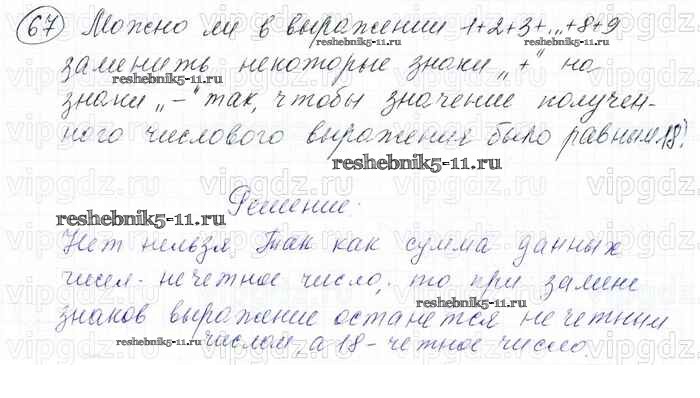 67 Можно ли в выражении 1+2+3+...+8+9
заменить некоторые знаки „+" на
знаки „-" так, чтобы значение получен-
ного числового выражения было равным 18?
Решение.
Нет нельзя. Так как сумма данных
чисел - нечетное число, то при замене
знаков выражение останется нечетным
числом, а 18 - четное число.
reshebnik5-11.ru
reshebnik5-11.ru
reshebnik5-11.ru
reshebnik5-11.ru
reshebnik5-11.ru
reshebnik5-11.ru
reshebnik5-11.ru
vipgdz.ru